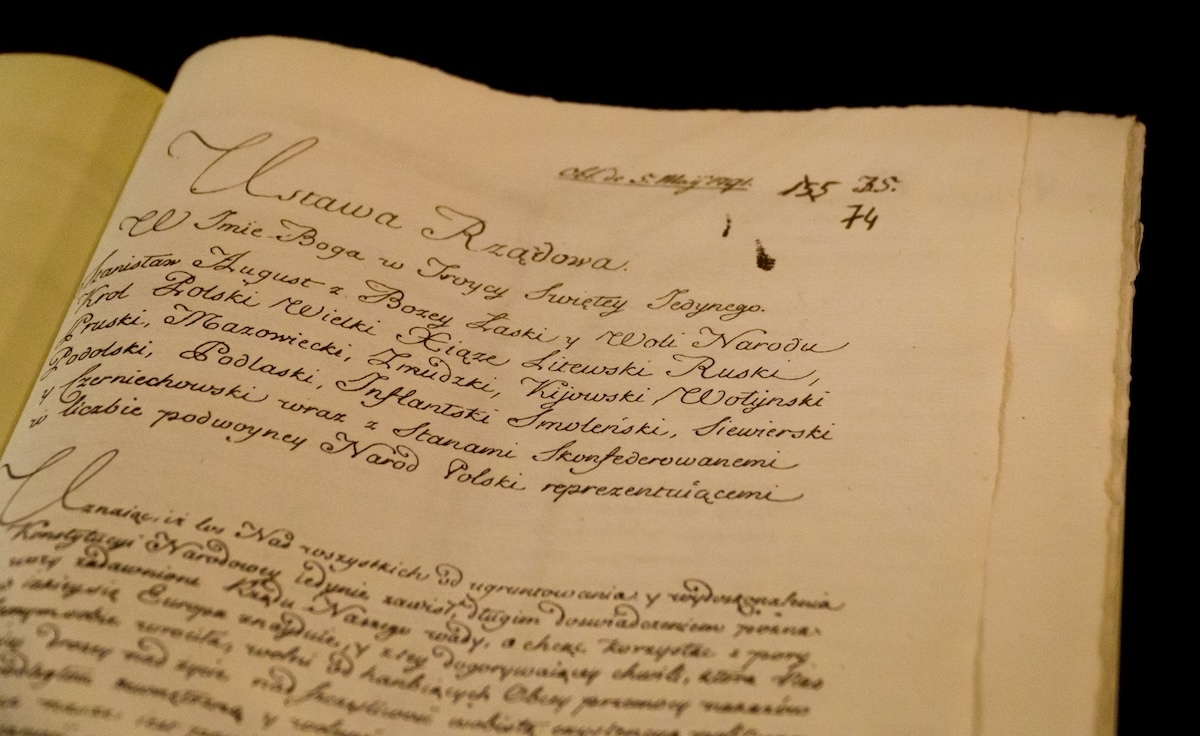 Obl. de 5. Maij 1791. 155 35.
74
Ustawa Rządowa.
W Imię Boga w Troycy Swiętey Jedynego.
Stanisław August z Bożey Łaski y Woli Narodu
Krol Polski Wielki Xiąże Litewski Ruski,
Pruski, Mazowiecki, Zmudzki, Kijowski, Wołyński
Podolski, Podlaski, Inflantski Smoleński, Siewierski
y Czerniechowski wraz z Stanami Skonfederowanemi
w liczbie podwoyney Narod Polski reprezentuiącemi
Uznaiąc, iż los Nas wszystkich od ugruntowania y wydoskonalenia
Konstytucyi Narodowey iedynie zawisł, długim doswiadczeniem pozna-
wszy zadawnione Rządu Naszego wady, a chcąc korzystać z pory
w iakiey się Europa znayduie, y z tey dogorywaiącey chwili, ktora Nas
wrociła, wolni od hańbiących Obcey przemocy nakazow
drożey nad życie, nad szczęśliwość osobistą
zewnętrzną y wolność